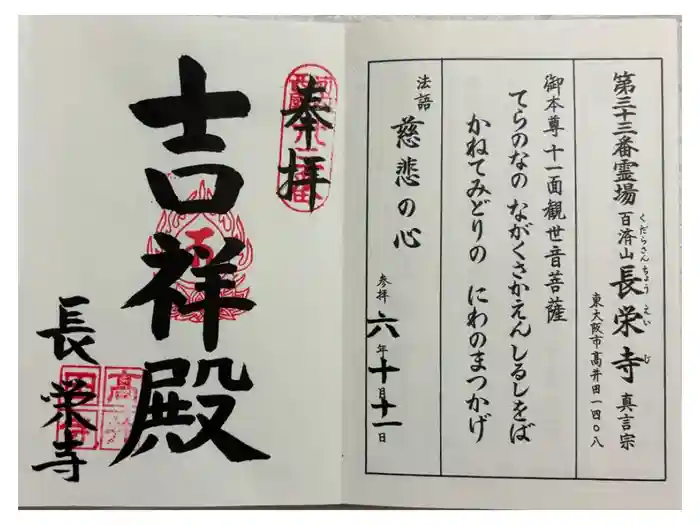 第三十三番霊場 百済山 長栄寺 真言宗
くだらさん ちょう えい じ
東大阪市高井田一四〇八
御本尊 十一面観世音菩薩
てらのなの ながくさかえん しるしをば
かねてみどりの にわのまつかげ
法語 慈悲の心
参拝 六年十月十一日
奉拝
吉祥殿
長栄寺